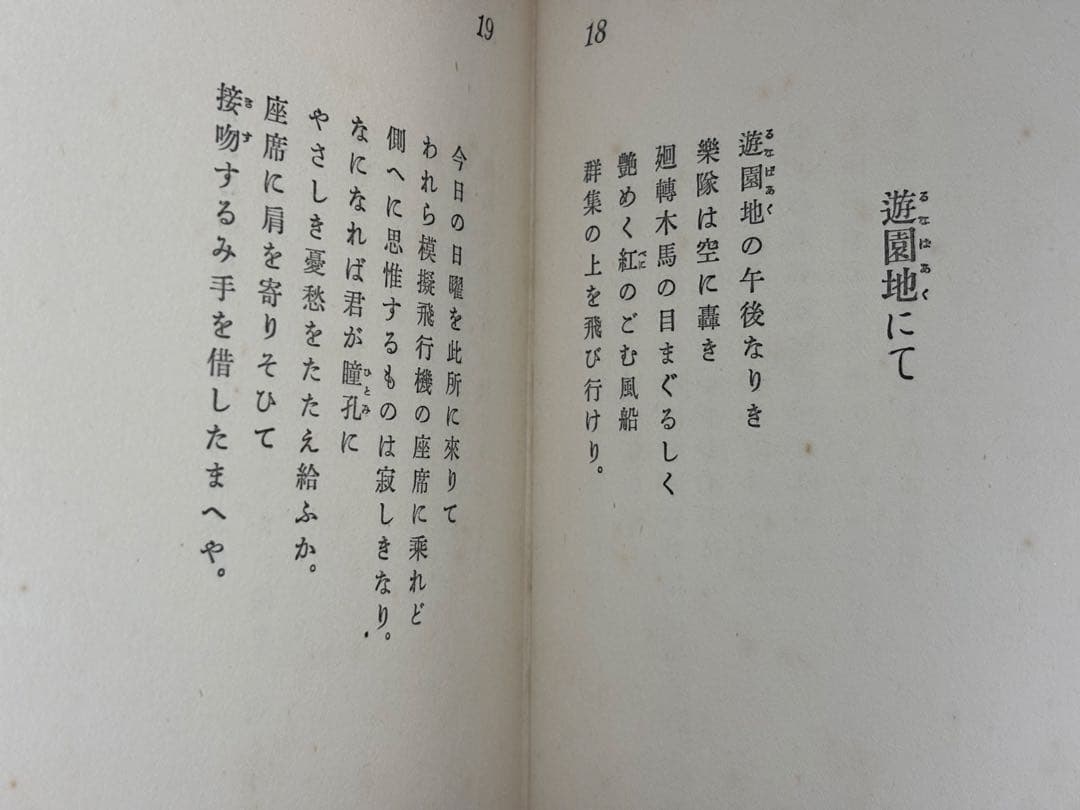 18
遊園地にて
るなぱあく
遊園地の午後なりき
るなぱあく
樂隊は空に轟き
廻轉木馬の目まぐるしく
艶めく紅のごむ風船
べに
群集の上を飛び行けり。
19
今日の日曜を此所に來りて
われら模擬飛行機の座席に乘れど
側へに思惟するものは寂しきなり。
なになれば君が瞳孔に
ひとみ
やさしき憂愁をたたえ給ふか。
座席に肩を寄りそひて
接吻するみ手を借したまへや。
きす